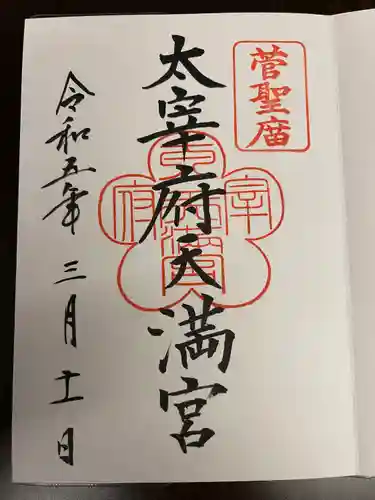 菅聖廟
太宰府天満宮
令和五年三月十一日